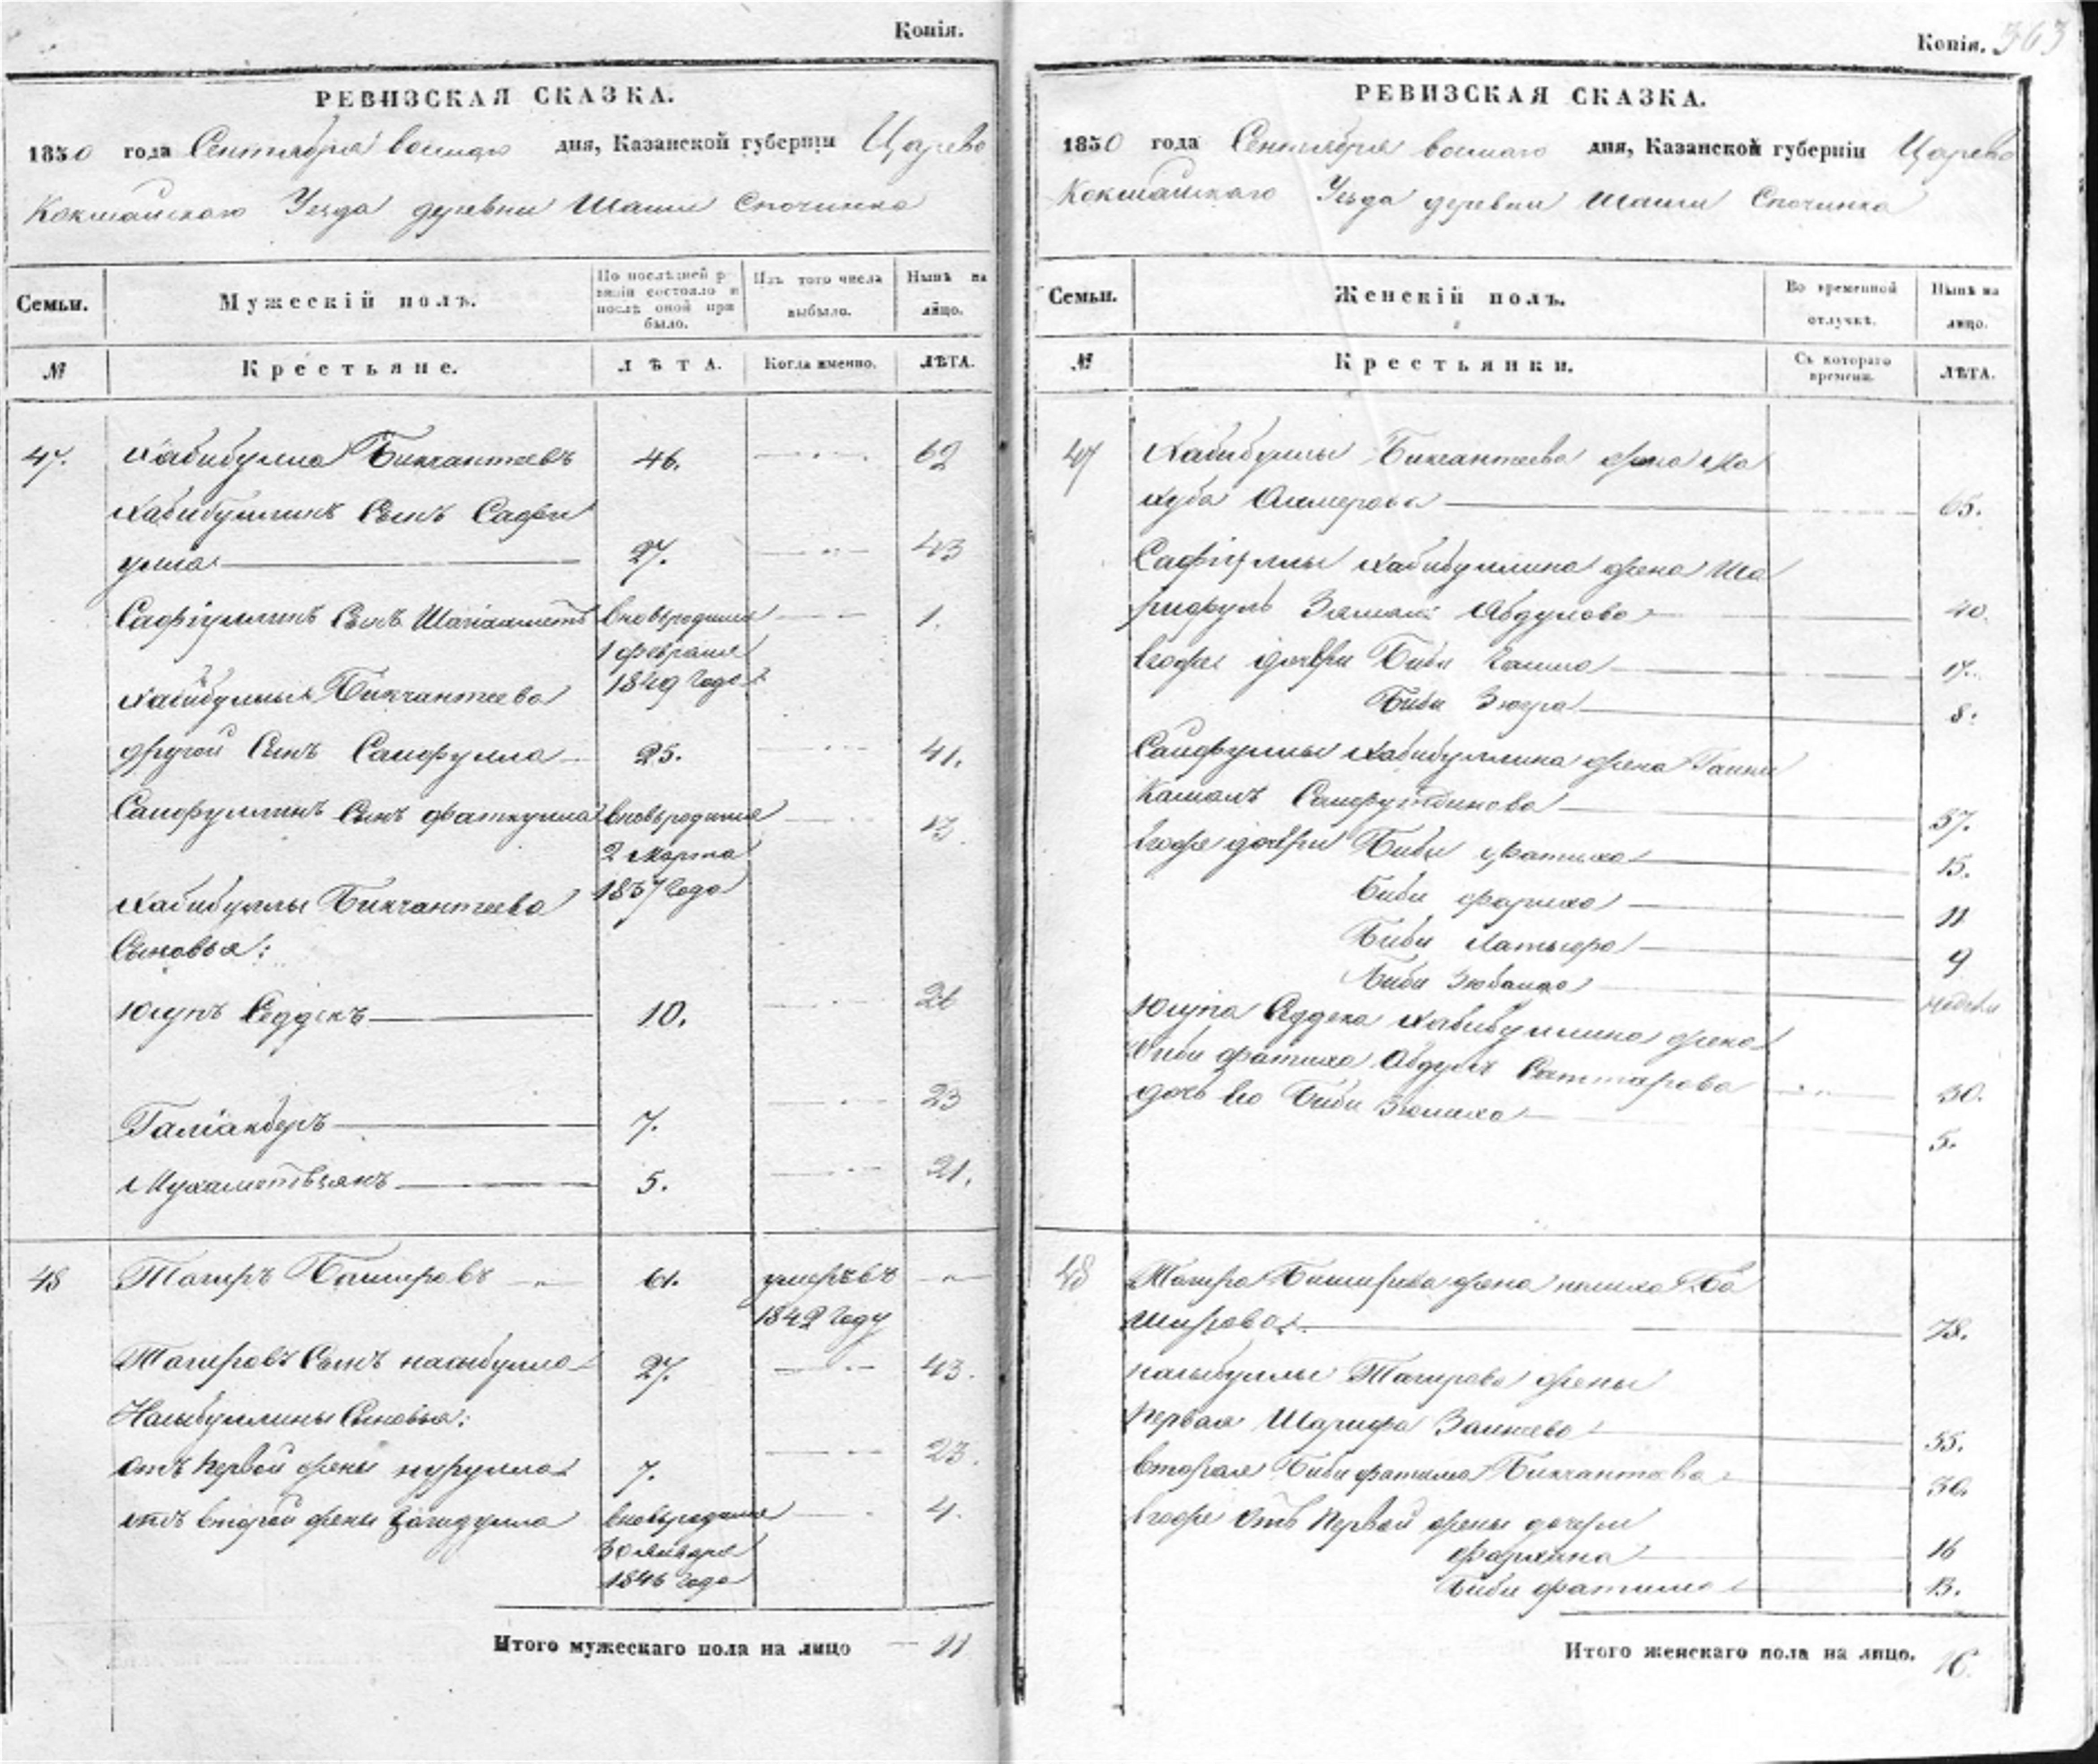 Копія.
РЕВИЗСКАЯ СКАЗКА.
1850 года Сентября дня, Казанской губерніи Царево
Кокшайскаго Уезда деревни Шаши Спочинка
Семьи. Мужескій полъ. По послѣдней ревизіи состояло и послѣ оной прибыло. Изъ того числа выбыло. Нынѣ на лицо.
№ Крестьяне. ЛѢТА. Когда именно. ЛѢТА.
47. Хабибулла Бикчантаевъ 46. 62
Хабибуллинъ Сынъ Сафи
улла 27. 43
Сафіуллинъ Сынъ Шагіахметъ вновьродился 1.
1 февраля
1849 года
Хабибуллы Бикчантаева
другой Сынъ Саифулла 25. 41.
Саифуллинъ Сынъ Фаткулла вновьродился 13.
2 Марта
1837 года
Хабибуллы Бикчантаева
Сыновья:
Юсупъ Седдекъ 10. 26
Галіакберъ 7. 23
Мухаметвзянъ 5. 21.
48 Тагиръ Башировъ 61. умеръ въ
1842 году
Тагировъ Сынъ Насыбулла 27. 43.
Насыбуллины Сыновья:
отъ первой жены Нурулла 7. 23.
отъ второй жены вновьродился 4.
30 Января
1846 года
Итого мужескаго пола на лицо 11
Копія. 363
РЕВИЗСКАЯ СКАЗКА.
1850 года Сентября дня, Казанской губерніи Царево
Кокшайскаго Уезда деревни Шаши Спочинка
Семьи. Женскій полъ. Во временной отлучкѣ. Нынѣ на лицо.
№ Крестьянки. Съ котораго времени. ЛѢТА.
47 Хабибуллы Бикчантаева жена Ма
65.
Сафіуллы Хабибуллина жена Ша
Абдулова 40.
ея дочери Биби 17.
Биби Зюгра 8.
Саифуллы Хабибуллина жена
Камалъ Саифутдинова 37.
дочери Биби Фатиха 15.
Биби Фариха 11
Биби 9
Биби недели
Юсупа Седдека Хабибуллина жена
Биби Фатиха Абдулъ Саттарова 30.
дочь ево Биби 5.
48 Тагира Баширова жена Ба
широва 78.
Насыбуллы Тагирова жены
первая Шарифа 55.
вторая Биби Фатима Бикчантаева 30.
отъ первой жены дочери
16
Биби Фатима 13.
Итого женскаго пола на лицо. 16.